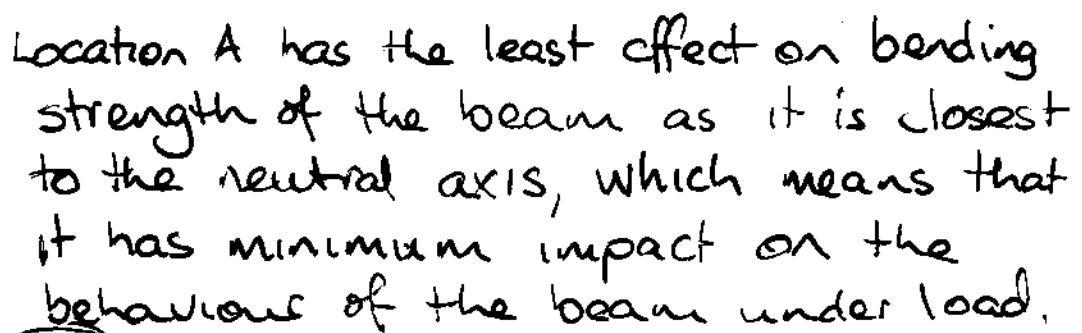 Location A has the least effect on bending
strength of the beam as it is closest
to the neutral axis, which means that
it has minimum impact on the
behaviour of the beam under load.